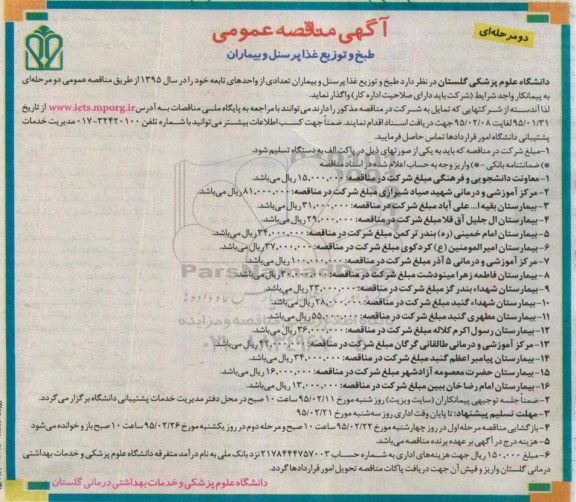 آگهی مناقصه عمومی
دو مرحله‌ای
طبخ و توزیع غذا پرسنل و بیماران
دانشگاه علوم پزشکی گلستان در نظر دارد طبخ و توزیع غذا پرسنل و بیماران تعدادی از واحدهای تابعه خود را در سال ۱۳۹۵ از طریق مناقصه عمومی دو مرحله‌ای
به پیمانکار واجد شرایط (شرکت باید دارای صلاحیت اداره کار) واگذار نماید.
لذا آندسته از شرکتهایی که تمایل به شرکت در مناقصه مذکور را دارند می‌توانند با مراجعه به پایگاه ملی مناقصات به آدرس www.iets.mporg.ir از تاریخ
۹۵/۰۱/۳۱ لغایت ۹۵/۰۲/۰۸ جهت دریافت اسناد اقدام نمایند. ضمناً جهت کسب اطلاعات بیشتر می‌توانید با شماره تلفن ۳۲۴۲۰۱۰۰-۰۱۷ مدیریت خدمات
پشتیبانی دانشگاه امور قراردادها تماس حاصل فرمایید.
۱-مبلغ شرکت در مناقصه که باید به یکی از صورتهای ذیل در پاکت الف به دستگاه تسلیم شود.
*) ضمانتنامه بانکی -*) واریز وجه به حساب اعلام شده در اسناد مناقصه
۱- معاونت دانشجویی و فرهنگی مبلغ شرکت در مناقصه: ۱۵,۰۰۰,۰۰۰ ریال می‌باشد.
۲- مرکز آموزشی و درمانی شهید صیاد شیرازی مبلغ شرکت در مناقصه: ۸۱,۰۰۰,۰۰۰ ریال می‌باشد.
۳- بیمارستان بقیه ا... علی آباد مبلغ شرکت در مناقصه: ۳۱,۰۰۰,۰۰۰ ریال می‌باشد.
۴- بیمارستان ال جلیل آق قلا مبلغ شرکت در مناقصه: ۲۹,۰۰۰,۰۰۰ ریال می‌باشد.
۵- بیمارستان امام خمینی (ره) بندر ترکمن مبلغ شرکت در مناقصه: ۳۴,۰۰۰,۰۰۰ ریال می‌باشد.
۶- بیمارستان امیرالمومنین (ع) کردکوی مبلغ شرکت در مناقصه: ۳۷,۰۰۰,۰۰۰ ریال می‌باشد.
۷- مرکز آموزشی و درمانی ۵ آذر مبلغ شرکت در مناقصه: ۱۰۰,۰۰۰,۰۰۰ ریال می‌باشد.
۸- بیمارستان فاطمه زهرا مینودشت مبلغ شرکت در مناقصه: ریال می‌باشد.
۹- بیمارستان شهداء بندر گز مبلغ شرکت در مناقصه: ۲۳,۰۰۰,۰۰۰ ریال می‌باشد.
۱۰- بیمارستان شهداء گنبد مبلغ شرکت در مناقصه: ۲۸,۰۰۰,۰۰۰ ریال می‌باشد.
۱۱- بیمارستان مطهری گنبد مبلغ شرکت در مناقصه: ۵۵,۰۰۰,۰۰۰ ریال می‌باشد.
۱۲- بیمارستان رسول اکرم کلاله مبلغ شرکت در مناقصه: ۳۶,۰۰۰,۰۰۰ ریال می‌باشد.
۱۳- مرکز آموزشی و درمانی طالقانی گرگان مبلغ شرکت در مناقصه: ریال می‌باشد.
۱۴- بیمارستان پیامبر اعظم گنبد مبلغ شرکت در مناقصه: ۳۴,۰۰۰,۰۰۰ ریال می‌باشد.
۱۵- بیمارستان حضرت معصومه آزادشهر مبلغ شرکت در مناقصه: ۱۶,۰۰۰,۰۰۰ ریال می‌باشد.
۱۶- بیمارستان امام رضا خان ببین مبلغ شرکت در مناقصه: ۱۳,۰۰۰,۰۰۰ ریال می‌باشد.
۲- ضمناً جلسه توجیهی پیمانکاران (سایت ویزیت) روز شنبه مورخ ۹۵/۰۲/۱۱ ساعت ۱۰ صبح در محل دفتر مدیریت خدمات پشتیبانی دانشگاه برگزار می‌گردد.
۳- مهلت تسلیم پیشنهاد: تا پایان وقت اداری روز سه‌شنبه مورخ ۹۵/۰۲/۲۱
۴- بازگشایی مناقصه مرحله اول در روز چهارشنبه مورخ ۹۵/۰۲/۲۲ ساعت ۱۰ صبح و مرحله دوم در روز یکشنبه مورخ ۹۵/۰۲/۲۶ ساعت ۱۰ صبح باز و خوانده می‌شود
۵- هزینه درج در آگهی بر عهده برنده مناقصه می‌باشد.
۶- مبلغ ۱۵۰,۰۰۰ ریال جهت هزینه‌های اداری به شماره حساب ۲۱۷۸۴۴۴۷۵۷۰۰۳ نزد بانک ملی به نام درآمد متفرقه دانشگاه علوم پزشکی و خدمات بهداشتی
درمانی گلستان واریز و فیش آن جهت دریافت پاکات مناقصه تحویل امور قراردادها گردد.
دانشگاه علوم پزشکی و خدمات بهداشتی درمانی گلستان